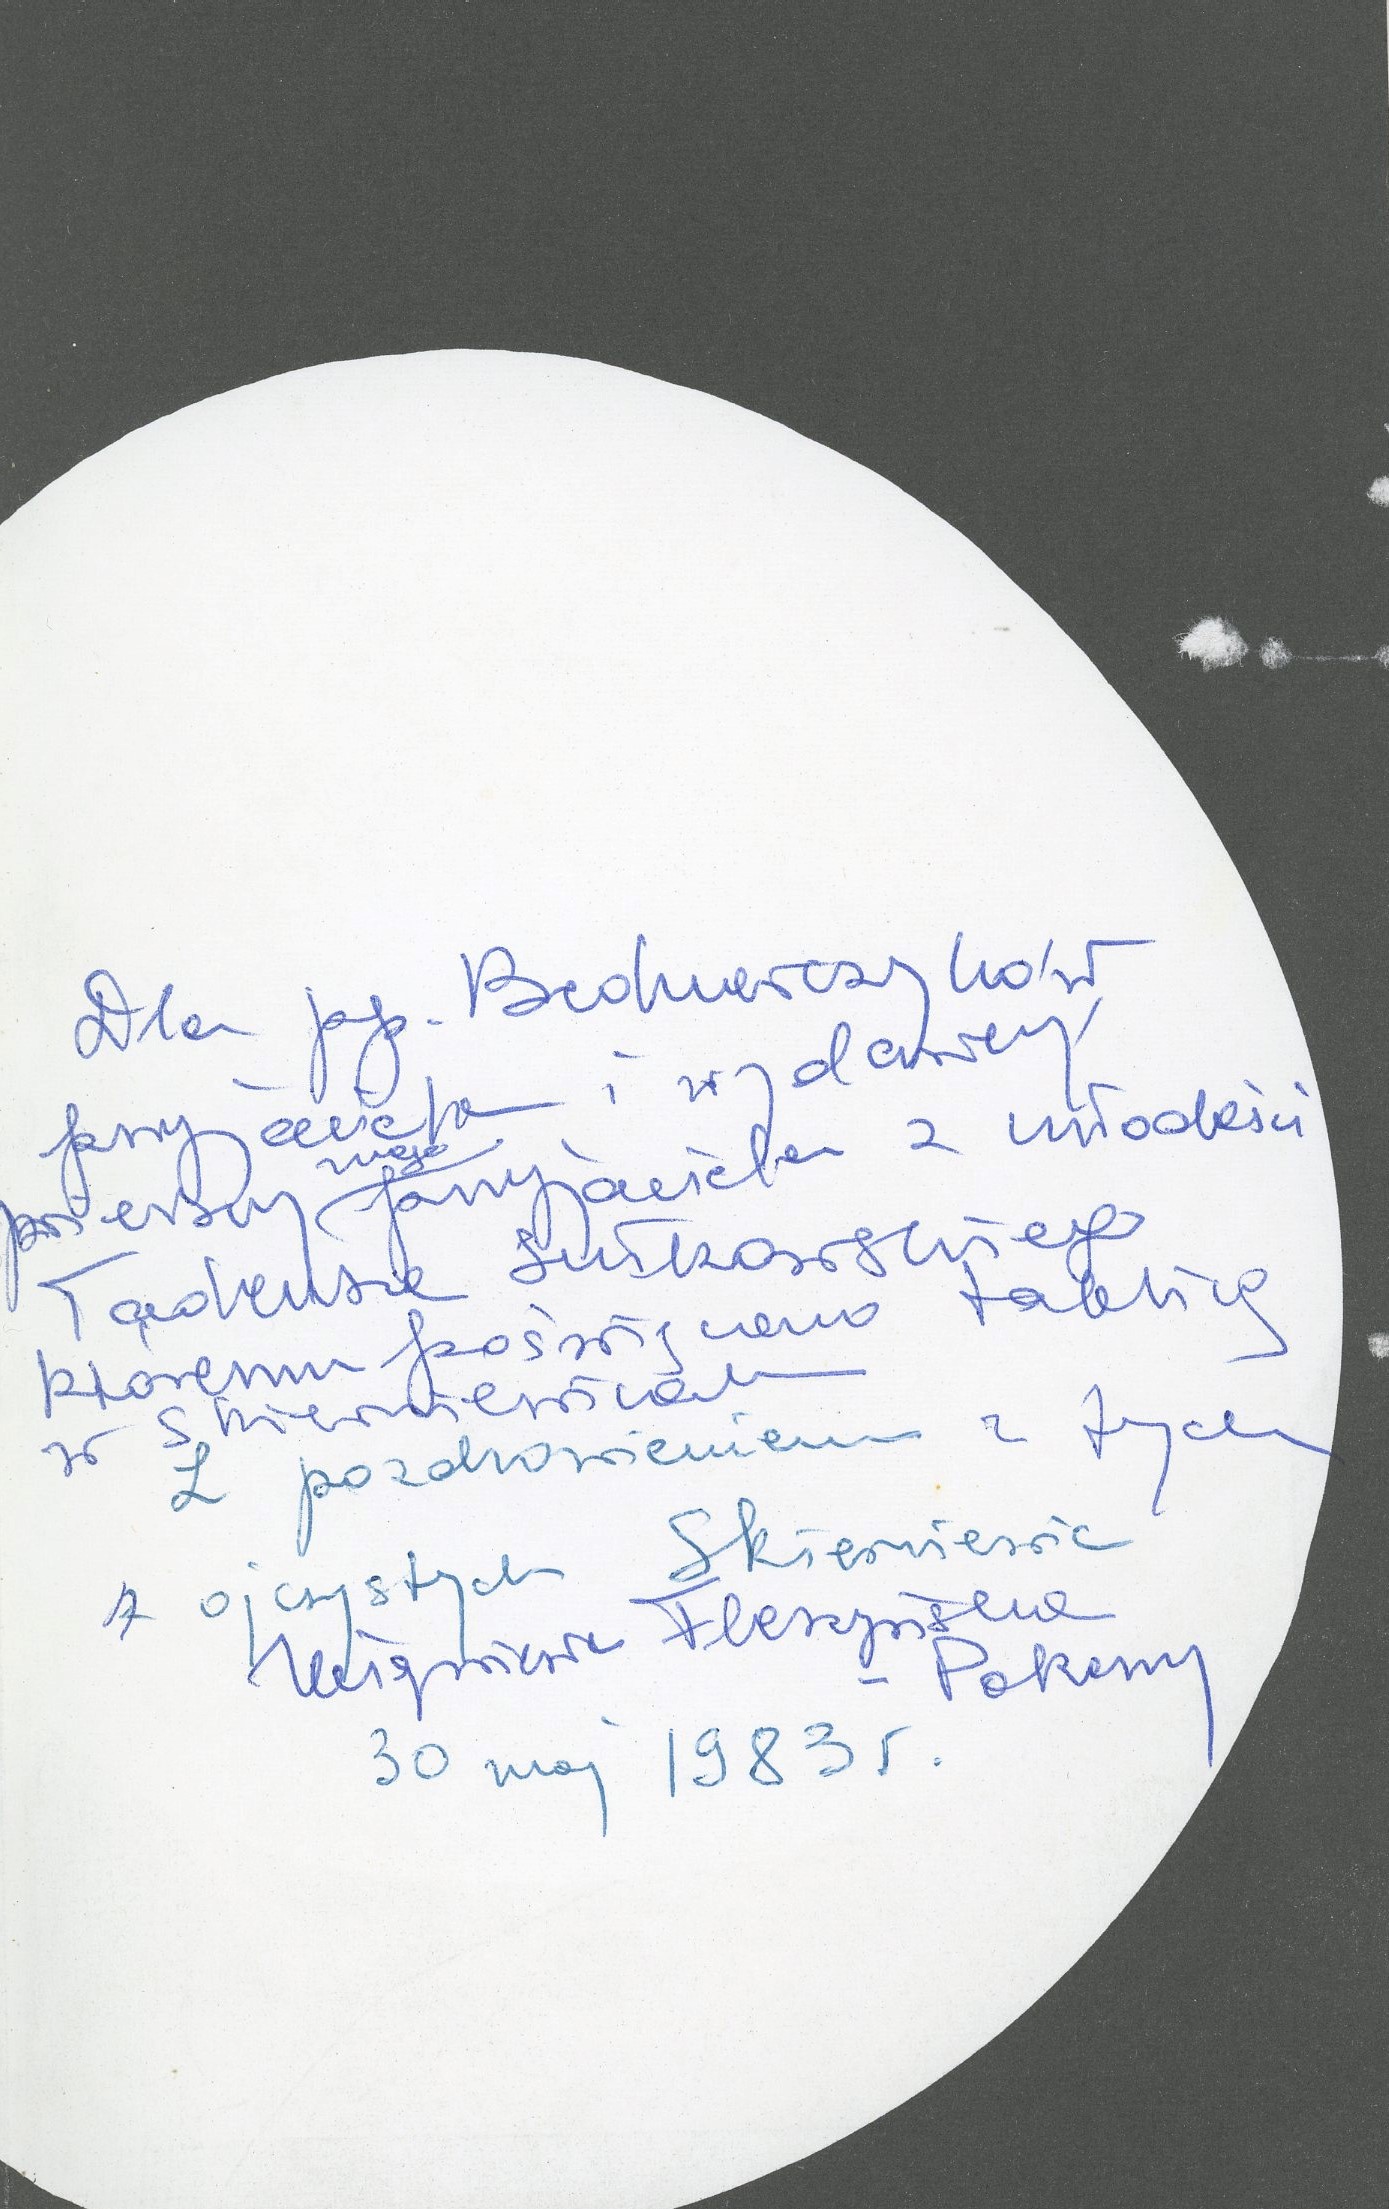 Dla pp. Bednarczyków
przyjaciela i wydawcy
wierszy mego przyjaciela z młodości
Tadeusza Sułkowskiego
któremu poświęcono tablicę
w Skierniewicach
Z pozdrowieniem z tych
z ojczystych Skierniewic
30 maj 1983 r.